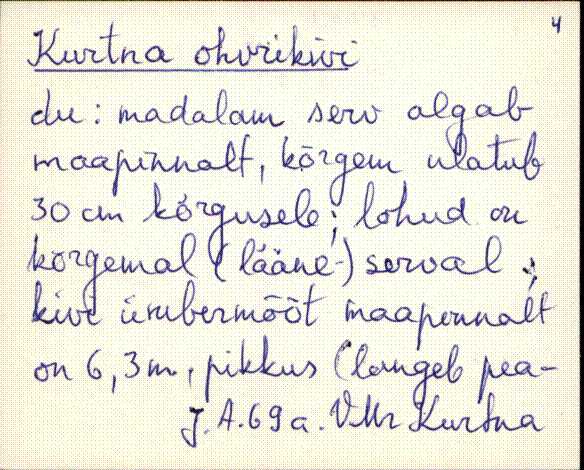 4
Kurtna ohvrikivi
du: madalam serv algab
maapinnalt, kõrgem ulatub
30 cm kõrgusele; lohud on
kõrgemal (lääne-) serval;
kivi ümbermõõt maapinnalt
on 6,3 m, pikkus (langeb pea-
J.A. 69 a. VMr Kurtna